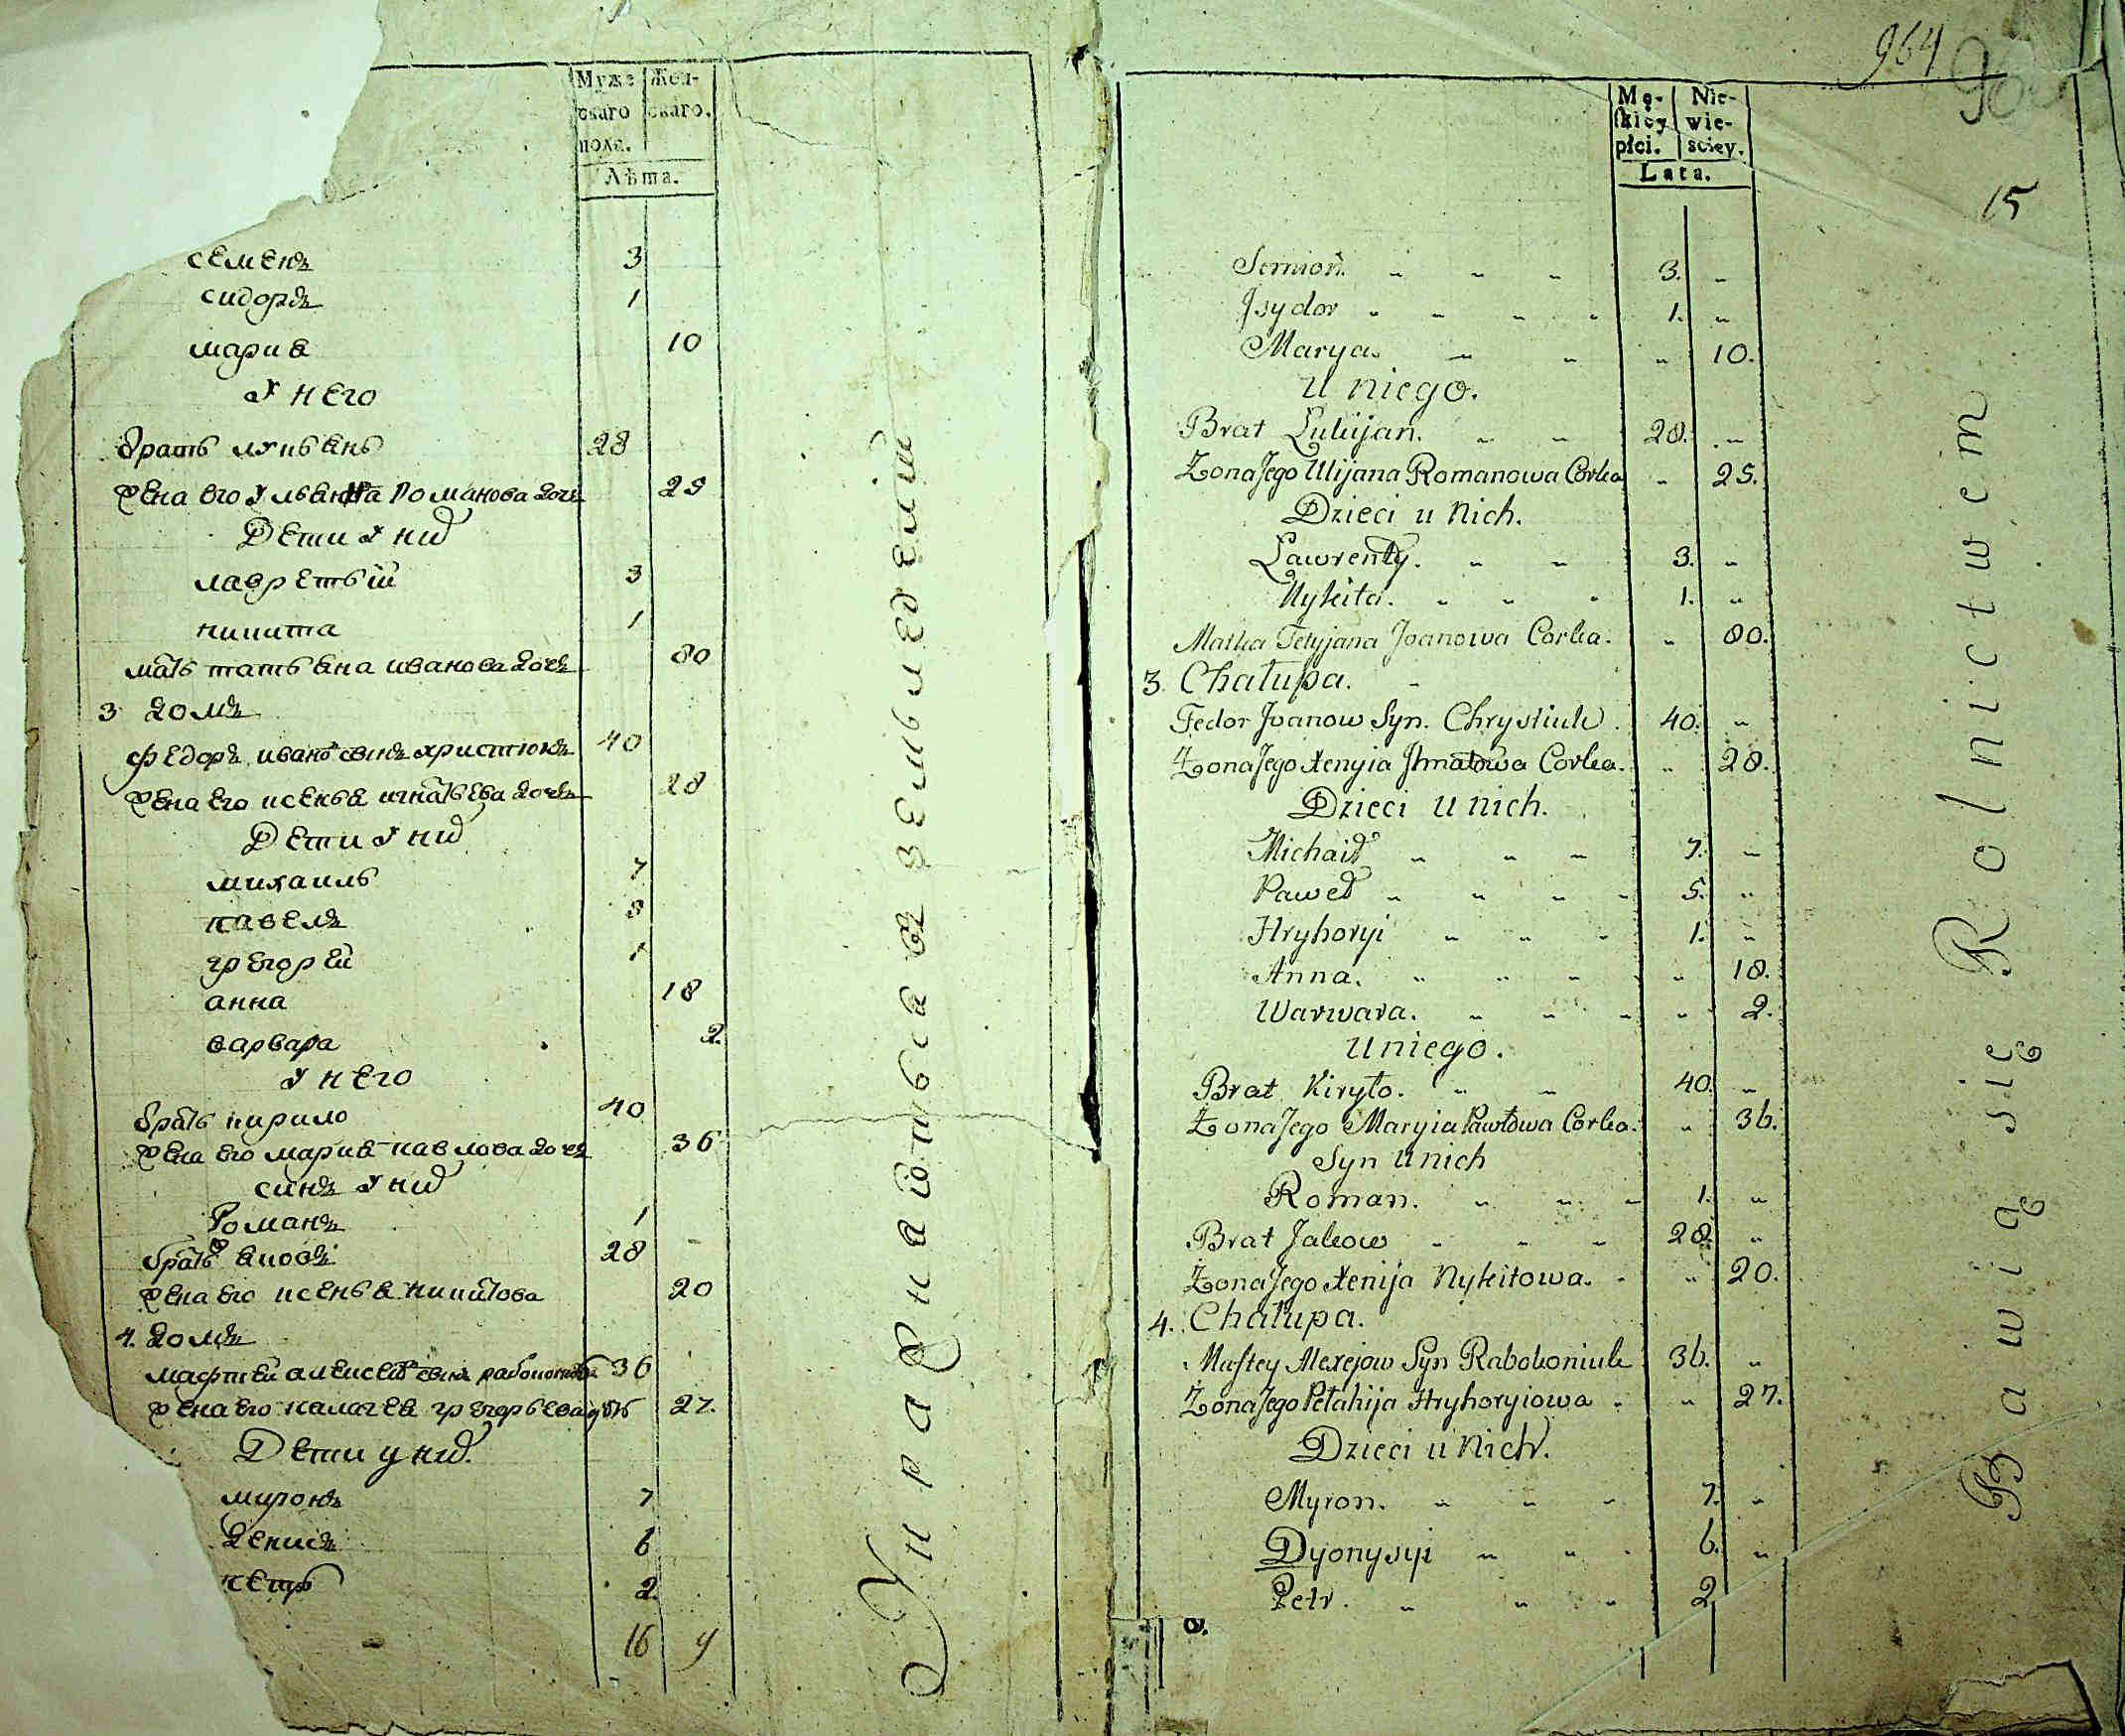 Муже Жен-
скаго скаго.
пола.
Лѣта.
семенъ 3
сидоръ 1
мариа 10
У него
братъ лукьянъ 28
жена его ульяна романова дочь 25
Дети у них
лаврентьий 3
никита 1
мать татьяна иванова дочь 80
3 домъ
федоръ иванов синъ христюкъ 40
жена его ксенья игнатьева дочь 28
Дети у них
михаилъ 7
павелъ 5
грегорей 1
анна 18
варвара 2.
У него
братъ кирило 40
жена его мария павлова дочь 36
синъ у них
Романъ 1
братъ яковъ 28 -
жена его ксенья никитова 20
4. домъ
мафтей алексеев синъ рабоконюкъ 36
жена его палагея грегорьева дочь 27.
Дети у них.
миронъ 7
денисъ 6
петръ 2.
16 9
Упражнаютьса въ земледелии
964
15
Mę- Nie-
skiey wie-
płci. sciey.
Lata.
Semion. „ „ „ 3. „
Jsydor „ „ „ „ 1. „
Marya. „ „ „ 10.
U niego.
Brat Lukijan. „ „ 28. „
Żona Jego Ulijana Romanowa Corka „ 25.
Dzieci u Nich.
Lawrenty. „ „ 3. „
Nykita. „ „ „ 1. „
Matka Tetyjana Joanowa Corka. „ 80.
3. Chałupa.
Fedor Joanow Syn. Chrystiuk. 40. „
Żona Jego Xenyia Jhnatowa Corka. „ 28.
Dzieci u nich.
Michaił „ „ „ 7. „
Paweł „ „ „ „ 5. „
Hryhoryi „ „ „ 1. „
Anna. „ „ „ „ „ 18.
Warwara. „ „ „ „ 2.
U niego.
Brat Kiryło. „ „ 40. „
Żona Jego Maryia Pawłowa Corka. „ 36.
Syn u nich
Roman. „ „ „ 1. „
Brat Jakow „ „ „ 28. „
Żona Jego Xenija Nykitowa. „ „ 20.
4. Chałupa.
Maftey Alexejow Syn Rabokoniuk 36. „
Żona Jego Pełahija Hryhoryiowa „ „ 27.
Dzieci u Nich.
Myron. „ „ „ 7. „
Dyonysyi „ „ „ 6. „
Petr. „ „ „ 2
Bawią się Rolnictwem